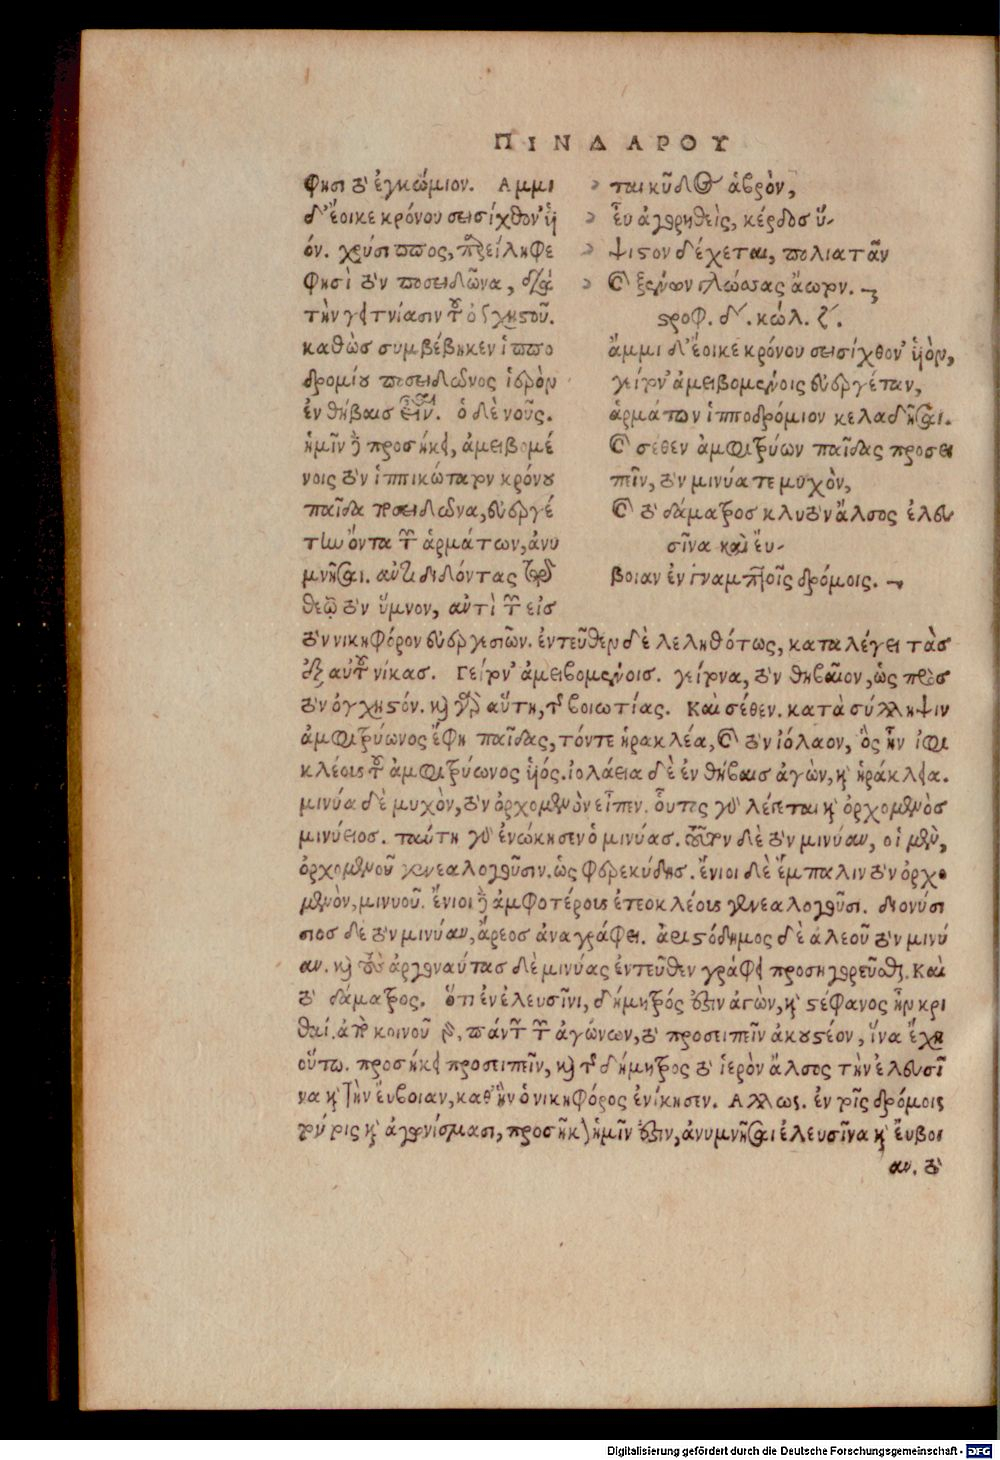 ΠΙΝΔΑΡΟΥ
φησι τὸ ἐγκώμιον. Αμμι
δ' ἔοικε κρόνου σεισίχθον' υἱ
όν. χρύσιππος, παρείληφε
φησὶ τὸν ποσειδῶνα, διὰ
τὴν γειτνίασιν τοῦ ὀγχηστοῦ.
καθὼς συμβέβηκεν ἱππο
δρομίου ποσειδῶνος ἱερὸν
ἐν θήβαις εἶναι. ὁ δὲ νοῦς.
ἡμῖν δὲ προσήκει, ἀμειβομέ
νοις τὸν ἱππικώτατον κρόνου
παῖδα ποσειδῶνα, εὐεργέ
την ὄντα τῶν ἁρμάτων, ἀνυ
μνῆσαι. αὖτι διδόντας τῷ
θεῷ τὸν ὕμνον, ἀντὶ τῶν εἰς
τὸν νικηφόρον εὐεργεσιῶν. ἐντεῦθεν δὲ λεληθότως, καταλέγει τὰς
ἐξ αὐτοῦ νίκας. Γείτον' ἀμειβομένοις. γείτονα, τὸν θηβαῖον, ὡς πρὸς
τὸν ὀγχηστόν. καὶ γὰρ αὕτη, τῆς βοιωτίας. Καὶ σέθεν. κατὰ σύλληψιν
ἀμφιτρύωνος ἔφη παῖδας, τόντε ἡρακλέα, καὶ τὸν ἰόλαον, ὃς ἦν ἰφι
κλέους τοῦ ἀμφιτρύωνος υἱός. ἰολάεια δὲ ἐν θήβαις ἀγὼν, καὶ ἡράκλεια.
μινύα δὲ μυχὸν, τὸν ὀρχομενὸν εἶπεν. οὗτος γὰρ λέγεται καὶ ὀρχομενὸς
μινύειος. ταύτῃ γὰρ ἐνώκησεν ὁ μινύας. τοῦτον δὲ τὸν μινύαν, οἱ μὲν,
ὀρχομενοῦ γενεαλογοῦσιν. ὡς φερεκύδης. ἔνιοι δὲ ἔμπαλιν τὸν ὀρχο
μενὸν, μινυοῦ. ἔνιοι δὲ ἀμφοτέρους ἐτεοκλέους γενεαλογοῦσι. διονύσι
σιος δὲ τὸν μινύαν, ἄρεος ἀναγράφει. ἀριστόδημος δὲ ἀλεοῦ τὸν μινύ
αν. καὶ τοὺς ἀργοναύτας δὲ μινύας ἐντεῦθεν γράφει προσηγορεῦσθαι. Καὶ
τὸ δάματρος. ὅτι ἐν ἐλευσῖνι, δήμητρός ἐστιν ἀγὼν, καὶ στέφανος ἦν κρι
θαί. ἀπὸ κοινοῦ δὲ, πάντων τῶν ἀγώνων, τὸ προσειπεῖν ἀκουστέον, ἵνα ἔχῃ
οὕτω. προσήκει προσειπεῖν, καὶ τῆς δήμητρος τὸ ἱερὸν ἄλσος τὴν ἐλευσῖ
να καὶ τὴν ἔυβοιαν, καθ' ἣν ὁ νικηφόρος ἐνίκησεν. Αλλως. ἐν τοῖς δρόμοις
τούτοις καὶ ἀγωνίσμασι, προσῆκον ἡμῖν ἐστιν, ἀνυμνῆσαι ἐλευσῖνα καὶ ἔυβοι
αν. τὸ
ται κῦδος ἁβρὸν,
ἔυ ἀγορηθεὶς, κέρδος ὕ-
ψιστον δέχεται, πολιατᾶν
καὶ ξένων γλώσσας ἄωτον.
στροφ. δ'. κώλ. ζ'.
ἄμμι δ' ἔοικε κρόνου σεισίχθον' υἱὸν,
γείτον' ἀμειβομένοις εὐεργέταν,
ἁρμάτων ἱπποδρόμιον κελαδῆσαι.
καὶ σέθεν ἀμφιτρύων παῖδας προσει
πεῖν, τὸν μινύα τε μυχὸν,
καὶ τὸ δάματρος κλυτὸν ἄλσος ἐλευ
σῖνα καὶ ἔυ-
βοιαν ἐν γναμπτοῖς δρόμοις.
Digitalisierung gefördert durch die Deutsche Forschungsgemeinschaft - DFG